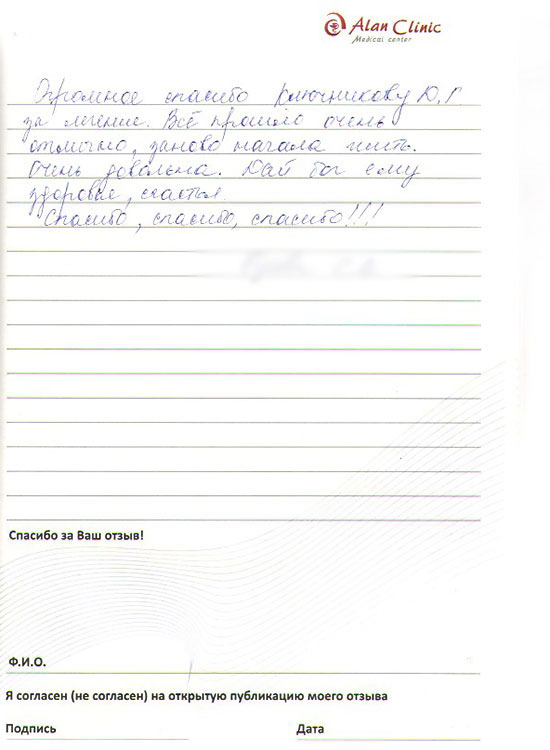 Alan Clinic
Medical center
Огромное спасибо Ключникову Ю.Г
за лечение. Всё прошло очень
отлично, заново начала жить.
Очень довольна. Дай бог ему
здоровья, счастья.
Спасибо, спасибо, спасибо!!!
Спасибо за Ваш отзыв!
Ф.И.О.
Я согласен (не согласен) на открытую публикацию моего отзыва
Подпись Дата